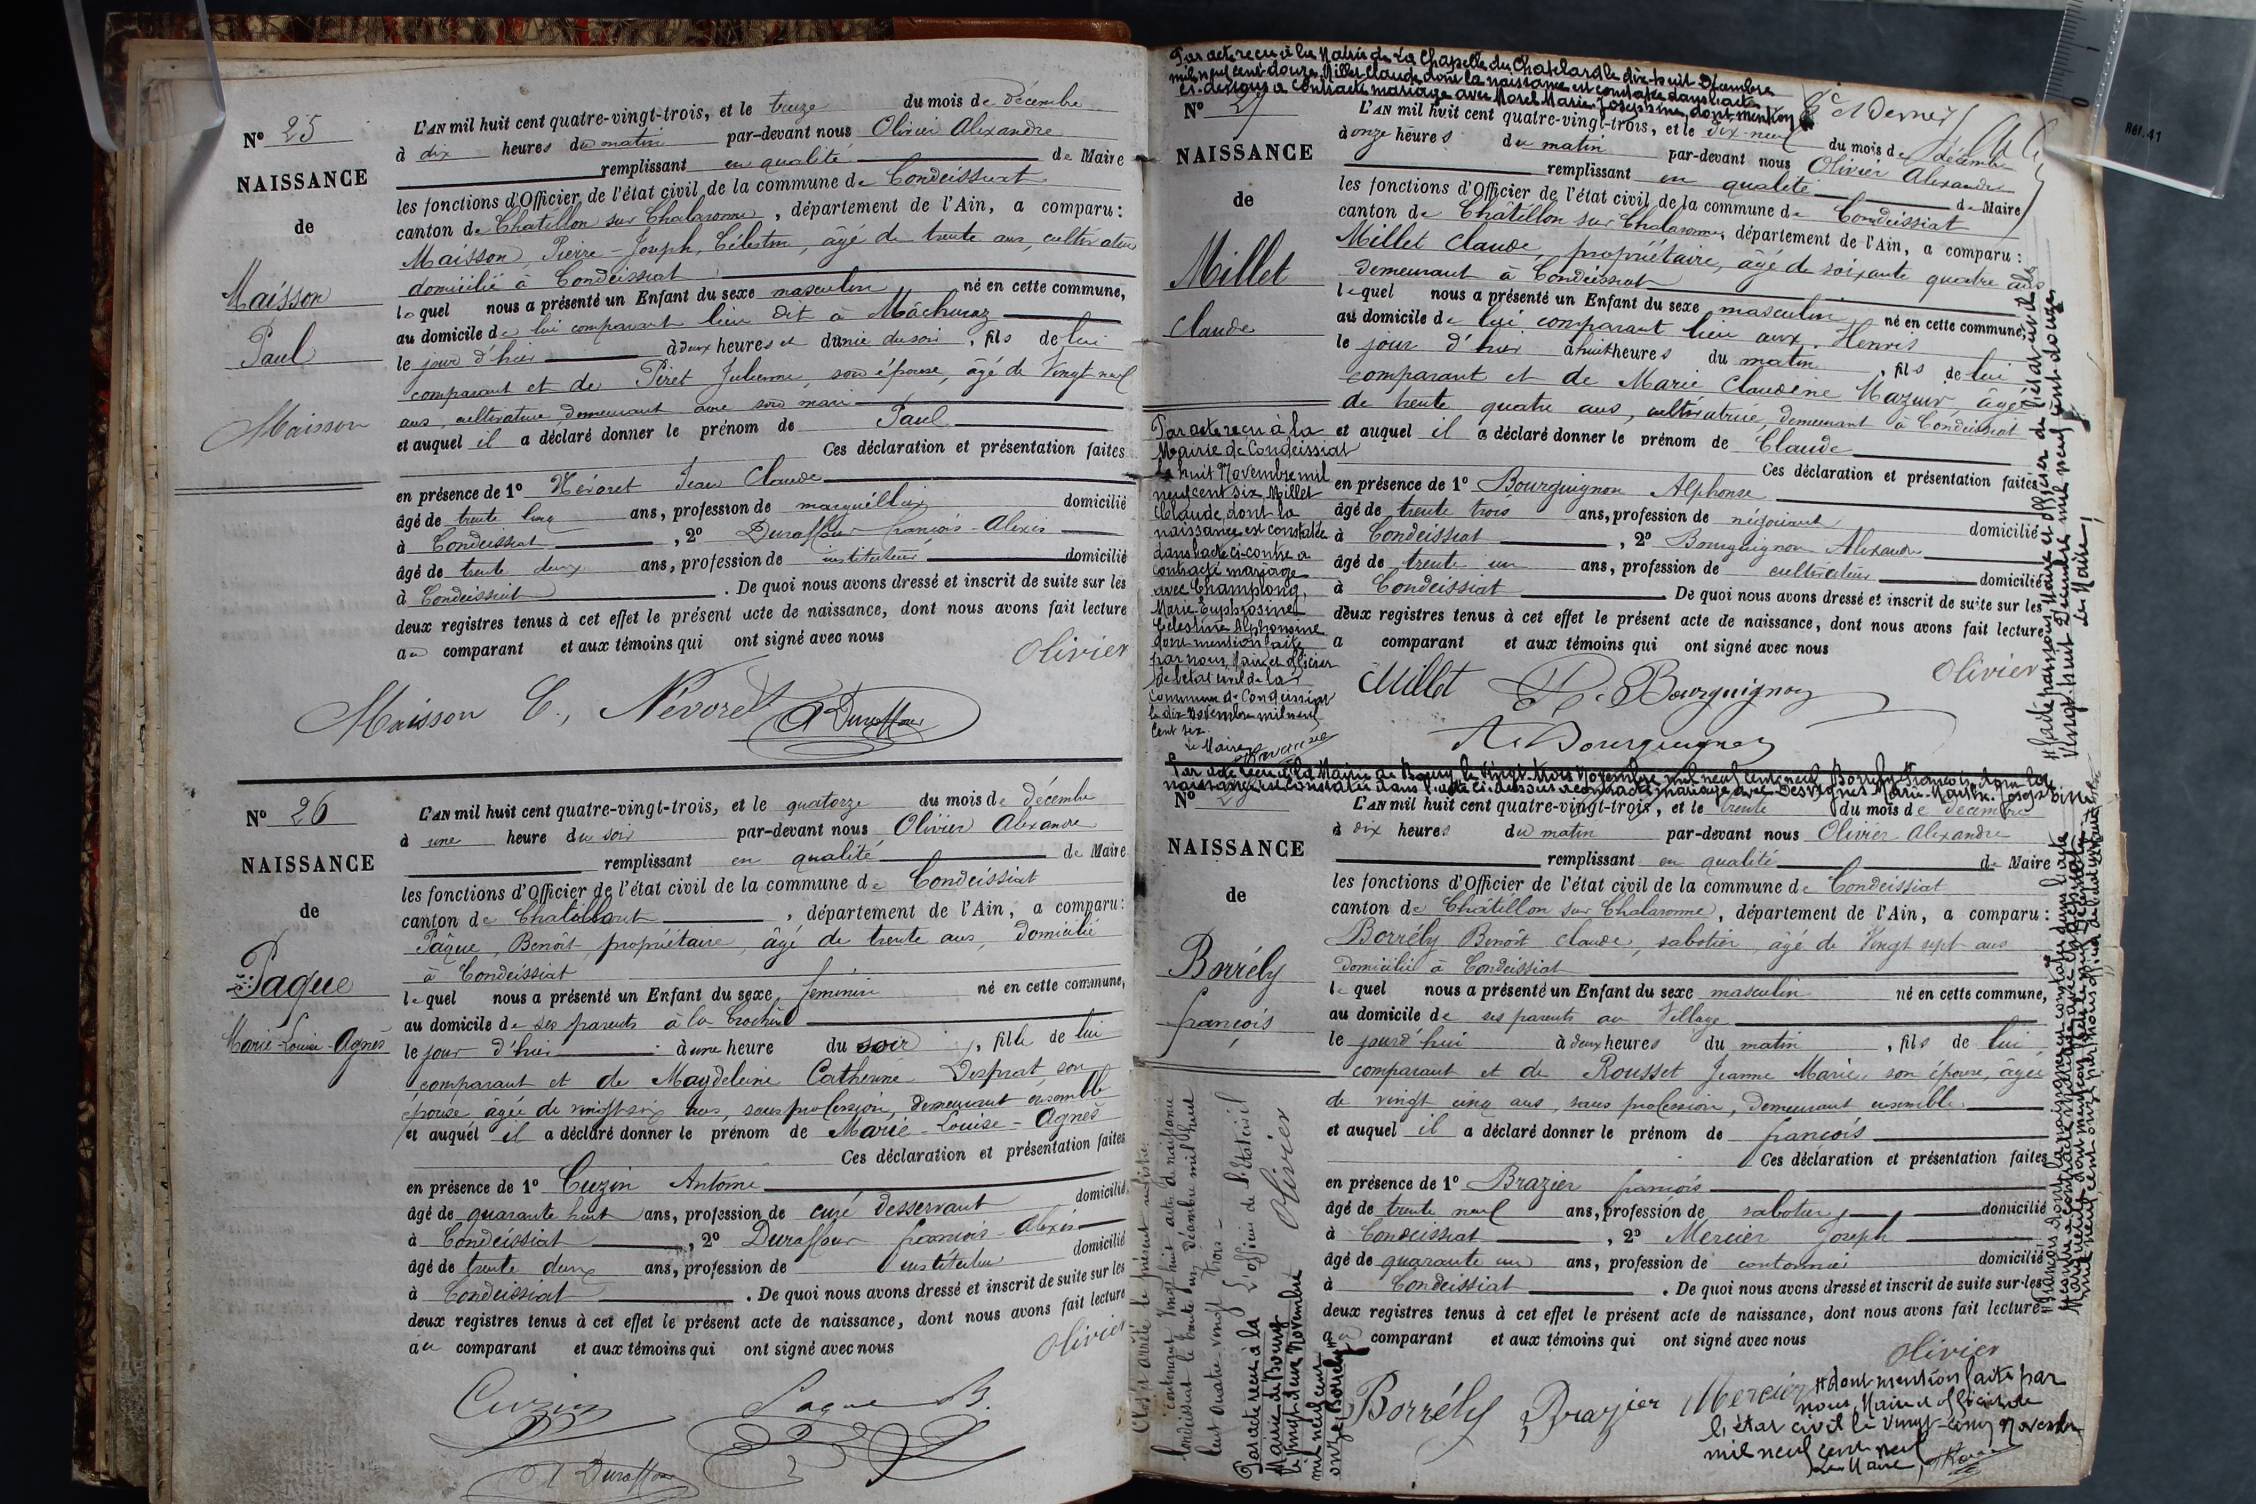 N° 25
NAISSANCE
de
Maisson
Paul
Maisson
L'AN mil huit cent quatre-vingt-trois, et le treize du mois de décembre
à dix heures du matin par-devant nous Olivier Alexandre
remplissant en qualité de Maire
les fonctions d'Officier de l'état civil de la commune de Condeissiat
canton de Chatillon sur Chalaronne, département de l'Ain, a comparu:
Maisson, Pierre-Joseph, Célestin, âgé de trente ans, cultivateur
domicilié à Condeissiat
lequel nous a présenté un Enfant du sexe masculin né en cette commune,
au domicile de lui comparant lieu dit à Mâchuraz
le jour d'hier à deux heures et demie du soir, fils de lui
comparant et de Péret Julienne, son épouse, âgé de Vingt-neuf
ans, cultivatrice, demeurant avec son mari
et auquel il a déclaré donner le prénom de Paul
Ces déclaration et présentation faites
en présence de 1° Névoret Jean Claude
âgé de trente cinq ans, profession de domicilié
à Condeissiat, 2° Duraffour françois-Alexis
âgé de trente deux ans, profession de instituteur domicilié
à Condeissiat. De quoi nous avons dressé et inscrit de suite sur les
deux registres tenus à cet effet le présent acte de naissance, dont nous avons fait lecture
au comparant et aux témoins qui ont signé avec nous
Olivier
Maisson C., Névoret A Duraffour
N° 26
NAISSANCE
de
Paque
Marie-Louise-Agnès
L'AN mil huit cent quatre-vingt-trois, et le quatorze du mois de décembre
à une heure du soir par-devant nous Olivier Alexandre
remplissant en qualité de Maire
les fonctions d'Officier de l'état civil de la commune de Condeissiat
canton de Chatillon, département de l'Ain, a comparu:
Pâque, Benoît, propriétaire, âgé de trente ans, domicilié
à Condeissiat
lequel nous a présenté un Enfant du sexe féminin né en cette commune,
au domicile de ses parents à la
le jour d'hier à une heure du soir, fille de lui
comparant et de Magdeleine Catherine Desprat, son
épouse âgée de vingt-six ans, sans profession, demeurant ensemble
et auquel il a déclaré donner le prénom de Marie-Louise-Agnès
Ces déclaration et présentation faites
en présence de 1° Cuzin Antoine
âgé de quarante huit ans, profession de curé desservant domicilié
à Condeissiat, 2° Duraffour françois-Alexis
âgé de trente deux ans, profession de instituteur domicilié
à Condeissiat. De quoi nous avons dressé et inscrit de suite sur les
deux registres tenus à cet effet le présent acte de naissance, dont nous avons fait lecture
au comparant et aux témoins qui ont signé avec nous
Olivier
Cuzin Paque B.
A Duraffour
Par acte reçu à la Mairie de La Chapelle du Chatelard le dix-huit Décembre
mil neuf cent douze, Millet Claude dont la naissance est constatée dans l'acte
ci-dessous a contracté mariage avec Morel Marie Josephine, dont mention
N° 27
NAISSANCE
de
Millet
Claude
L'AN mil huit cent quatre-vingt-trois, et le dix-neuf du mois de décembre
à onze heures du matin par-devant nous Olivier Alexandre
remplissant en qualité de Maire
les fonctions d'Officier de l'état civil de la commune de Condeissiat
canton de Châtillon sur Chalaronne, département de l'Ain, a comparu:
Millet Claude, propriétaire, âgé de soixante quatre ans
demeurant à Condeissiat
lequel nous a présenté un Enfant du sexe masculin né en cette commune,
au domicile de lui comparant lieu aux Henris
le jour d'hier à huit heures du matin, fils de lui
comparant et de Marie Claudine Mazuir, âgée
de trente quatre ans, cultivatrice, demeurant à Condeissiat
et auquel il a déclaré donner le prénom de Claude
Ces déclaration et présentation faites
en présence de 1° Bourguignon Alphonse
âgé de trente trois ans, profession de négociant domicilié
à Condeissiat, 2° Bourguignon Alexandre
âgé de trente un ans, profession de cultivateur domicilié
à Condeissiat. De quoi nous avons dressé et inscrit de suite sur les
deux registres tenus à cet effet le présent acte de naissance, dont nous avons fait lecture
a comparant et aux témoins qui ont signé avec nous
Olivier
Millet Bourguignon
A. Bourguignon
Par acte reçu à la
Mairie de Condeissiat
le huit Novembre mil
neuf cent six, Millet
Claude, dont la
naissance est constatée
dans l'acte ci-contre a
contracté mariage
avec Champlong,
Marie Euphrosine
Célestine Alphonsine
dont mention faite
par nous, Maire et officier
de l'état civil de la
commune de Condeissiat
le dix Novembre mil neuf
cent six.
Le Maire,
faite par nous Maire et officier de l'état civil le
Vingt-huit Décembre mil neuf cent douze
Le Maire,
Par acte reçu à la Mairie de Bourg le Vingt-trois Novembre mil neuf cent neuf Borrély François dont la
naissance est constatée dans l'acte ci-dessous a contracté mariage avec Desvignes Marie Josephine
N°
NAISSANCE
de
Borrély
françois
L'AN mil huit cent quatre-vingt-trois, et le trente du mois de décembre
à dix heures du matin par-devant nous Olivier Alexandre
remplissant en qualité de Maire
les fonctions d'Officier de l'état civil de la commune de Condeissiat
canton de Châtillon sur Chalaronne, département de l'Ain, a comparu:
Borrély Benoît Claude, sabotier, âgé de Vingt sept ans
domicilié à Condeissiat
lequel nous a présenté un Enfant du sexe masculin né en cette commune,
au domicile de ses parents au Village
le jourd'hui à deux heures du matin, fils de lui
comparant et de Rousset Jeanne Marie, son épouse, âgée
de vingt cinq ans, sans profession, demeurant ensemble
et auquel il a déclaré donner le prénom de françois
Ces déclaration et présentation faites
en présence de 1° Brazier françois
âgé de trente neuf ans, profession de sabotier domicilié
à Condeissiat, 2° Mercier Joseph
âgé de quarante un ans, profession de cantonnier domicilié
à Condeissiat. De quoi nous avons dressé et inscrit de suite sur les
deux registres tenus à cet effet le présent acte de naissance, dont nous avons fait lecture
au comparant et aux témoins qui ont signé avec nous
Olivier
Borrély Brazier Mercier
dont mention faite par
nous, Maire et officier de
l'état civil le Vingt-cinq Novembre
mil neuf cent neuf
Le Maire,
Clos et arrêté le présent registre
contenant Vingt huit actes de naissance
Condeissiat le trente un décembre mil huit
cent quatre-vingt trois
L'officier de l'état civil
Olivier
Par acte reçu à la
Mairie de Bourg
le Vingt-deux Novembre
mil neuf cent
onze, Borrély
François dont la naissance est constatée dans l'acte
Réf. 41